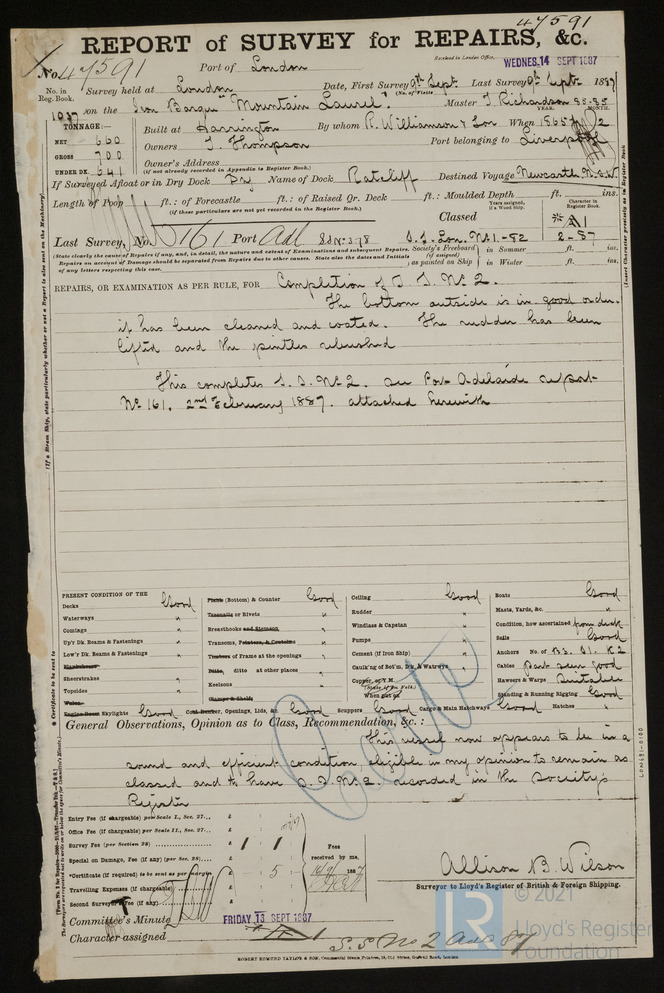 47591
REPORT of SURVEY for REPAIRS, &c.
Received in London Office,
WEDNES. 14 SEPT 1887
No. 47591 Port of London
No. in Reg. Book. Survey held at London Date, First Survey 9th Sept. Last Survey 9th Sept. 1887
(No. of Visits)
1037 on the Iron Barque "Mountain Laurel". Master T. Richardson 85-85
TONNAGE:— YEAR. MONTH.
NET 660 Built at Harrington By whom R. Williamson & Son When 1865 2
GROSS 700 Owners T. Thompson Port belonging to Liverpool
UNDER DK. 641 Owner's Address
(if not already recorded in Appendix to Register Book.)
If Surveyed Afloat or in Dry Dock Dry Name of Dock Ratcliff Destined Voyage Newcastle N.S.W.
Length of Poop ft.: of Forecastle ft.: of Raised Qr. Deck ft.: Moulded Depth ft. ins.
(if these particulars are not yet recorded in the Register Book.)
Years assigned, if a Wood Ship.
Character in Register Book.
Classed A1
Last Survey, No. 161 Port Adl S.S. Lon. No. 1-82 2-87
Society's Freeboard (if assigned) as painted on Ship in Summer ft. ins.
in Winter ft. ins.
(State clearly the cause of Repairs, if any, and, in detail, the nature and extent of Examinations and subsequent Repairs.
Repairs on account of Damage should be separated from Repairs due to other causes. State also the dates and Initials
of any letters respecting this case.
REPAIRS, OR EXAMINATION AS PER RULE, FOR Completion of S. S. No. 2.
The bottom outside is in good order.
it has been cleaned and coated. The rudder has been
lifted and the pintles rebushed
This completes S. S. No 2. see Port Adelaide report
No. 161. 2nd February 1887. attached herewith
PRESENT CONDITION OF THE
Decks Good
Waterways "
Comings "
Up'r Dk. Beams & Fastenings "
Low'r Dk. Beams & Fastenings "
Sheerstrakes "
Topsides "
Engine Room Skylights Good
Planks (Bottom) & Counter Good
Treenails or Rivets "
Breasthooks and Stemson "
Transoms, Pointers, & Crutches "
Timbers of Frame at the openings "
Ditto, ditto at other places "
Keelsons "
Clamps & Shelfs
Coal Bunker, Openings, Lids, &c. Good
Ceiling Good
Rudder "
Windlass & Capstan "
Pumps "
Cement (if Iron Ship) "
Caulk'ng of Bot'm, Dk., & Watrwys "
Copper, or Y.M.
When put on
Scuppers Good
Cargo & Main Hatchways Good
Boats Good
Masts, Yards, &c. "
Condition, how ascertained from deck
Sails Good
Anchors No. of B3. S1. K2
Cables Part seen good
Hawsers & Warps Suitable
Standing & Running Rigging Good
Hatches "
General Observations, Opinion as to Class, Recommendation, &c.:
This vessel now appears to be in a
sound and efficient condition, eligible in my opinion to remain as
classed and to have S. S. No. 2. recorded in the Society's
Register
Entry Fee (if chargeable) per Scale I., Sec. 27... £
Office Fee (if chargeable) per Scale II., Sec. 27... £
Survey Fee (per Section 28) £ 1 1
Special on Damage, Fee (if any) (per Sec. 28) £
*Certificate (if required) to be sent as per margin £ 5
Travelling Expenses (if chargeable) £
Second Surveyor's Fee (if any) £
Fees received by me,
Allison B. Wilson
Surveyor to Lloyd's Register of British & Foreign Shipping.
Committee's Minute FRIDAY 13 SEPT 1887
Character assigned A 1
S.S No 2 87
ROBERT EDMUND TAYLOR & SON
LR
© 2021
Lloyd's Register
Foundation